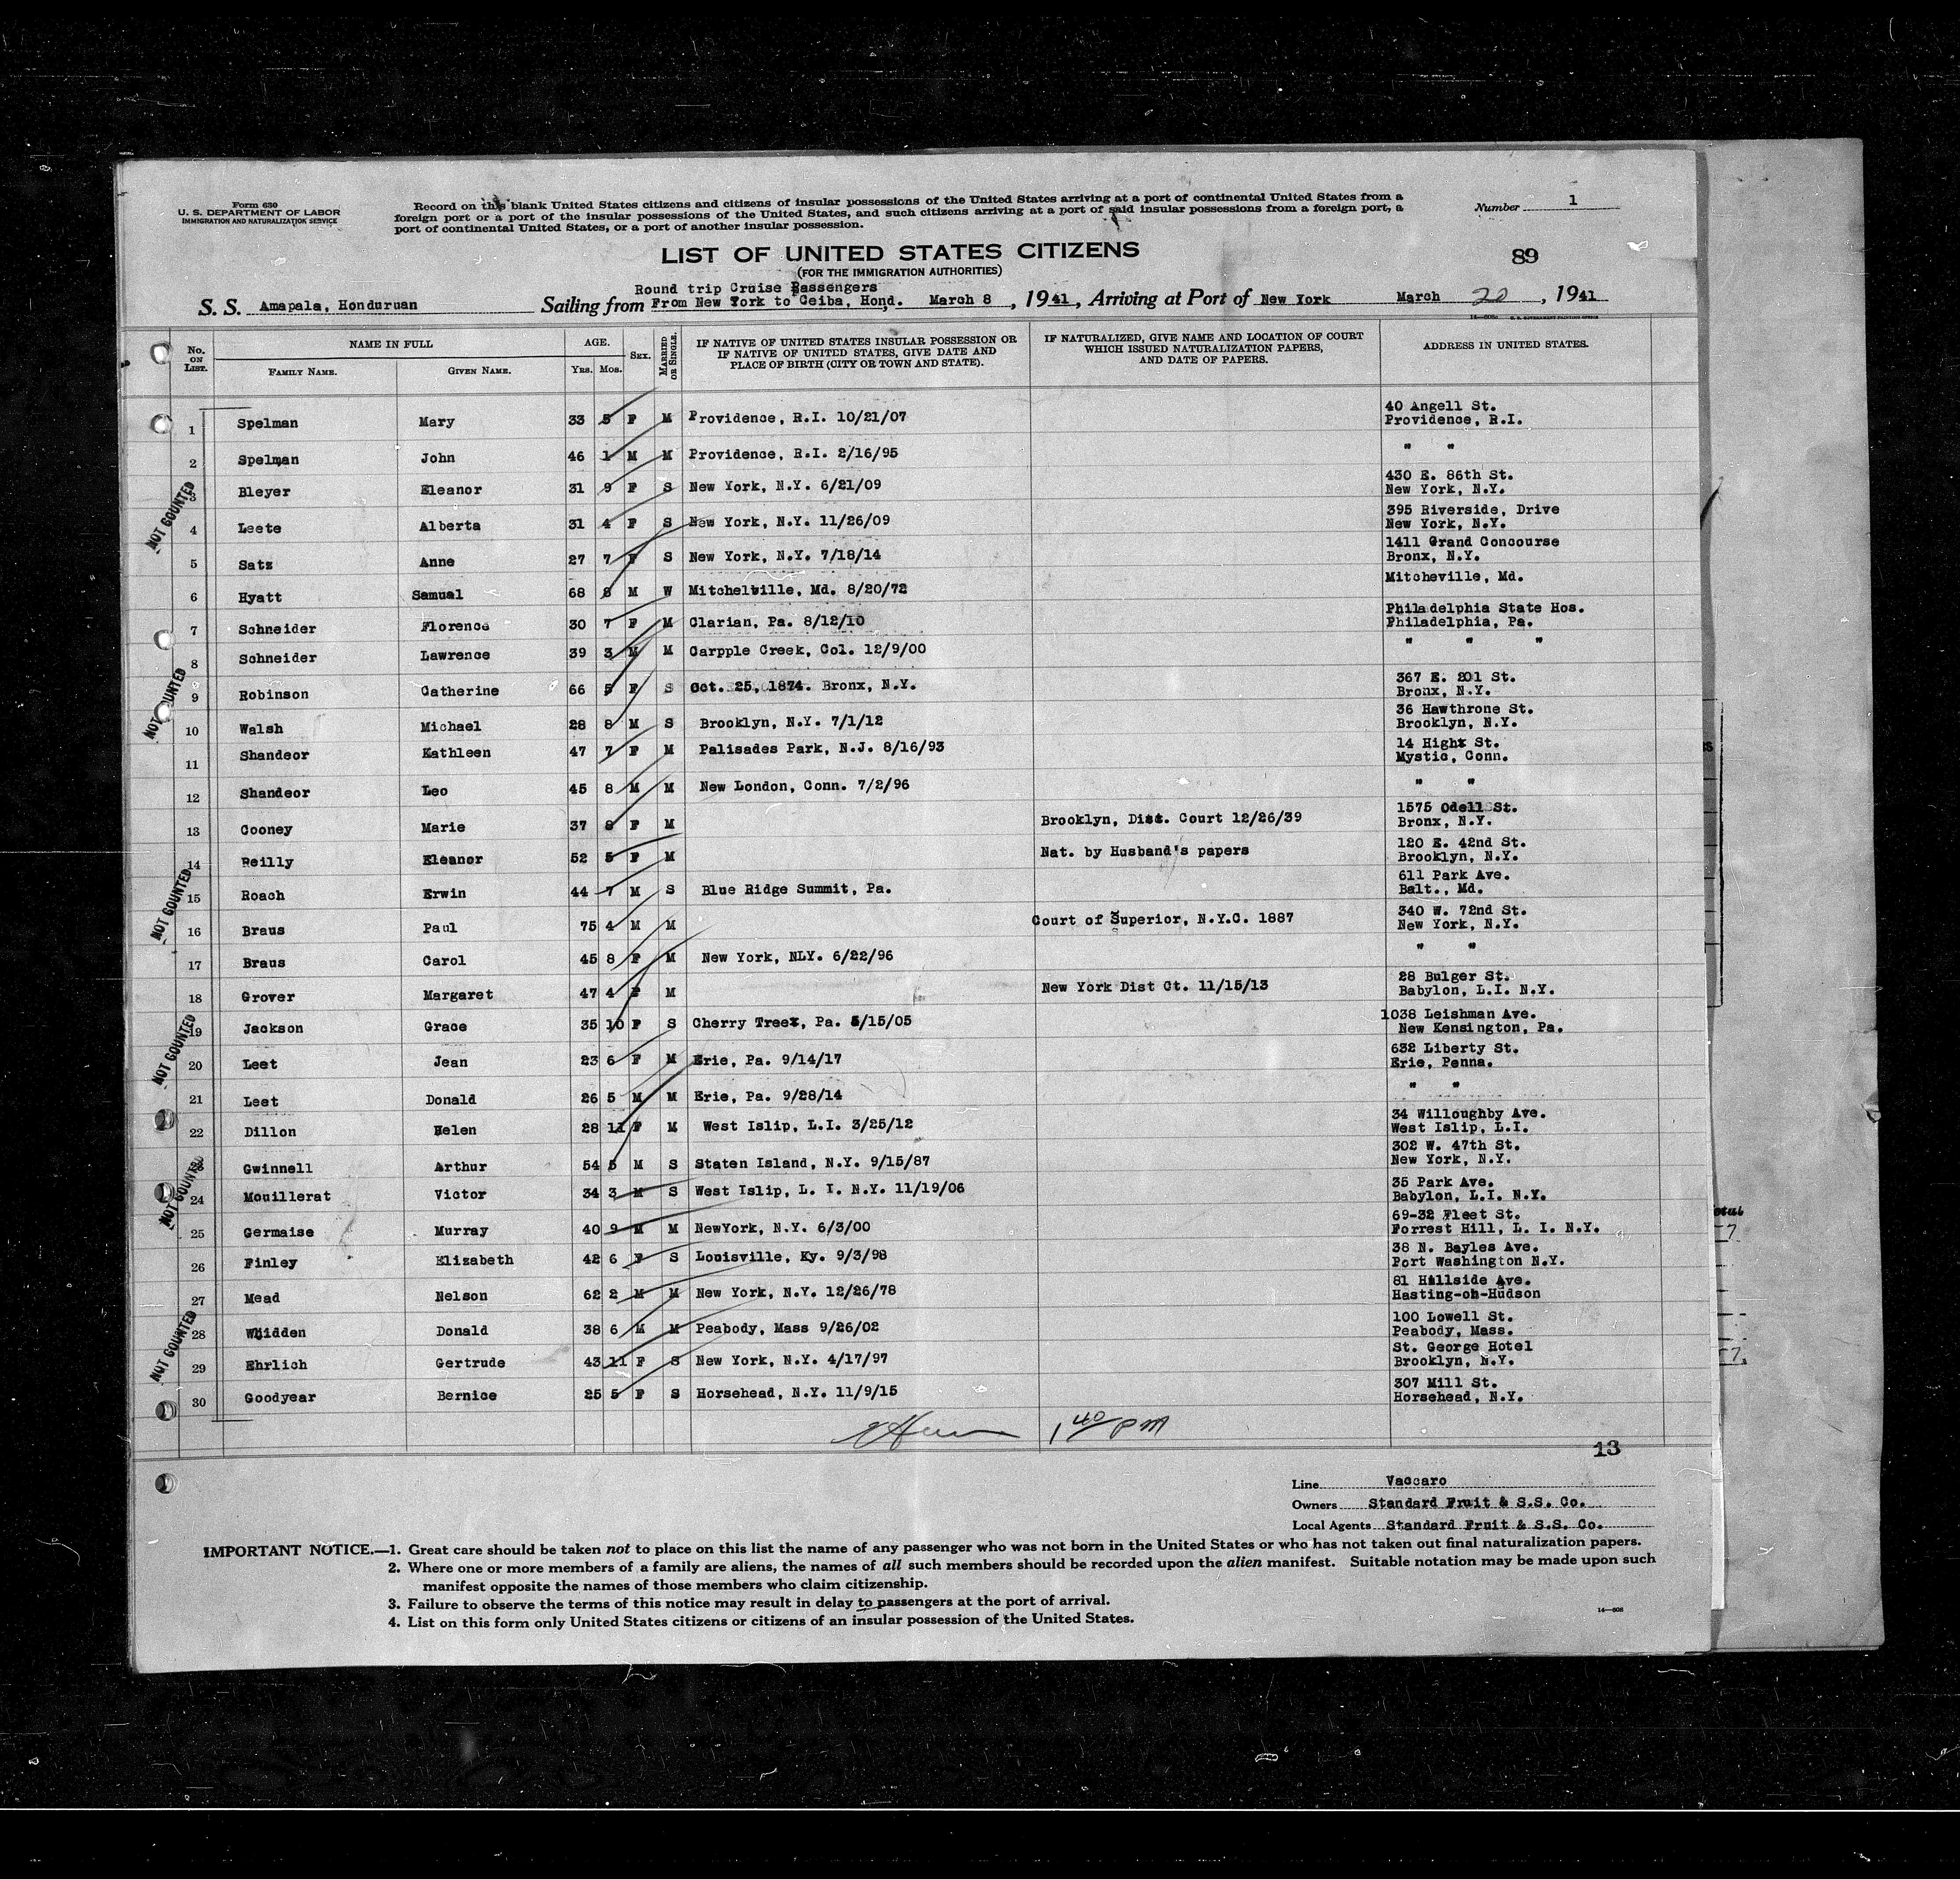 Form 630
U. S. DEPARTMENT OF LABOR
IMMIGRATION AND NATURALIZATION SERVICE
Record on this blank United States citizens and citizens of insular possessions of the United States arriving at a port of continental United States from a
foreign port or a port of the insular possessions of the United States, and such citizens arriving at a port of said insular possessions from a foreign port, a
port of continental United States, or a port of another insular possession.
Number 1
LIST OF UNITED STATES CITIZENS
(FOR THE IMMIGRATION AUTHORITIES)
89
Round trip Cruise Passengers
S. S. Amapala, Honduruan Sailing from From New York to Ceiba, Hond. March 8, 1941, Arriving at Port of New York March 20, 1941
No. ON LIST. NAME IN FULL AGE. SEX. MARRIED OR SINGLE. IF NATIVE OF UNITED STATES INSULAR POSSESSION OR IF NATIVE OF UNITED STATES, GIVE DATE AND PLACE OF BIRTH (CITY OR TOWN AND STATE). IF NATURALIZED, GIVE NAME AND LOCATION OF COURT WHICH ISSUED NATURALIZATION PAPERS, AND DATE OF PAPERS. ADDRESS IN UNITED STATES.
FAMILY NAME. GIVEN NAME. YRS. MOS.
1 Spelman Mary 33 5 F M Providence, R.I. 10/21/07 40 Angell St. Providence, R.I.
2 Spelman John 46 1 M M Providence, R.I. 2/16/95 " "
3 Bleyer Eleanor 31 9 F S New York, N.Y. 6/21/09 430 E. 86th St. New York, N.Y.
NOT COUNTED
4 Leete Alberta 31 4 F S New York, N.Y. 11/26/09 395 Riverside, Drive New York, N.Y.
5 Satz Anne 27 7 F S New York, N.Y. 7/18/14 1411 Grand Concourse Bronx, N.Y.
6 Hyatt Samual 68 8 M W Mitchelville, Md. 8/20/72 Mitcheville, Md.
7 Schneider Florence 30 7 F M Clarian, Pa. 8/12/10 Philadelphia State Hos. Philadelphia, Pa.
8 Schneider Lawrence 39 3 M M Carpple Creek, Col. 12/9/00 " " "
NOT COUNTED
9 Robinson Catherine 66 5 F S Oct. 25, 1874. Bronx, N.Y. 367 E. 201 St. Bronx, N.Y.
10 Walsh Michael 28 8 M S Brooklyn, N.Y. 7/1/12 36 Hawthrone St. Brooklyn, N.Y.
11 Shandeor Kathleen 47 7 F M Palisades Park, N.J. 8/16/93 14 High St. Mystic, Conn.
12 Shandeor Leo 45 8 M M New London, Conn. 7/2/96 " "
13 Cooney Marie 37 8 F M Brooklyn, Dist. Court 12/26/39 1575 Odell St. Bronx, N.Y.
14 Reilly Eleanor 52 5 F M Nat. by Husband's papers 120 E. 42nd St. Brooklyn, N.Y.
NOT COUNTED
15 Roach Erwin 44 7 M S Blue Ridge Summit, Pa. 611 Park Ave. Balt., Md.
16 Braus Paul 75 4 M M Court of Superior, N.Y.C. 1887 340 W. 72nd St. New York, N.Y.
17 Braus Carol 45 8 F M New York, NLY. 6/22/96 " "
18 Grover Margaret 47 4 F M New York Dist Ct. 11/15/13 28 Bulger St. Babylon, L.I. N.Y.
19 Jackson Grace 35 10 F S Cherry Tree, Pa. 5/15/05 1038 Leishman Ave. New Kensington, Pa.
NOT COUNTED
20 Leet Jean 23 6 F M Erie, Pa. 9/14/17 632 Liberty St. Erie, Penna.
21 Leet Donald 26 5 M M Erie, Pa. 9/28/14 " "
22 Dillon Helen 28 11 F M West Islip, L.I. 3/25/12 34 Willoughby Ave. West Islip, L.I.
23 Gwinnell Arthur 54 5 M S Staten Island, N.Y. 9/15/87 302 W. 47th St. New York, N.Y.
NOT COUNTED
24 Mouillerat Victor 34 3 M S West Islip, L. I. N.Y. 11/19/06 35 Park Ave. Babylon, L.I. N.Y.
25 Germaise Murray 40 9 M M NewYork, N.Y. 6/3/00 69-32 Fleet St. Forrest Hill, L. I. N.Y.
26 Finley Elizabeth 42 6 F S Louisville, Ky. 9/3/98 38 N. Bayles Ave. Port Washington N.Y.
27 Mead Nelson 62 2 M M New York, N.Y. 12/26/78 81 Hillside Ave. Hasting-on-Hudson
28 Whidden Donald 38 6 M M Peabody, Mass 9/26/02 100 Lowell St. Peabody, Mass.
NOT COUNTED
29 Ehrlich Gertrude 43 11 F S New York, N.Y. 4/17/97 St. George Hotel Brooklyn, N.Y.
30 Goodyear Bernice 25 5 F S Horsehead, N.Y. 11/9/15 307 Mill St. Horsehead, N.Y.
1 40 PM
13
Line Vaccaro
Owners Standard Fruit & S.S. Co.
Local Agents Standard Fruit & S.S. Co.
IMPORTANT NOTICE.—1. Great care should be taken not to place on this list the name of any passenger who was not born in the United States or who has not taken out final naturalization papers.
2. Where one or more members of a family are aliens, the names of all such members should be recorded upon the alien manifest. Suitable notation may be made upon such
manifest opposite the names of those members who claim citizenship.
3. Failure to observe the terms of this notice may result in delay to passengers at the port of arrival.
4. List on this form only United States citizens or citizens of an insular possession of the United States.
14—608